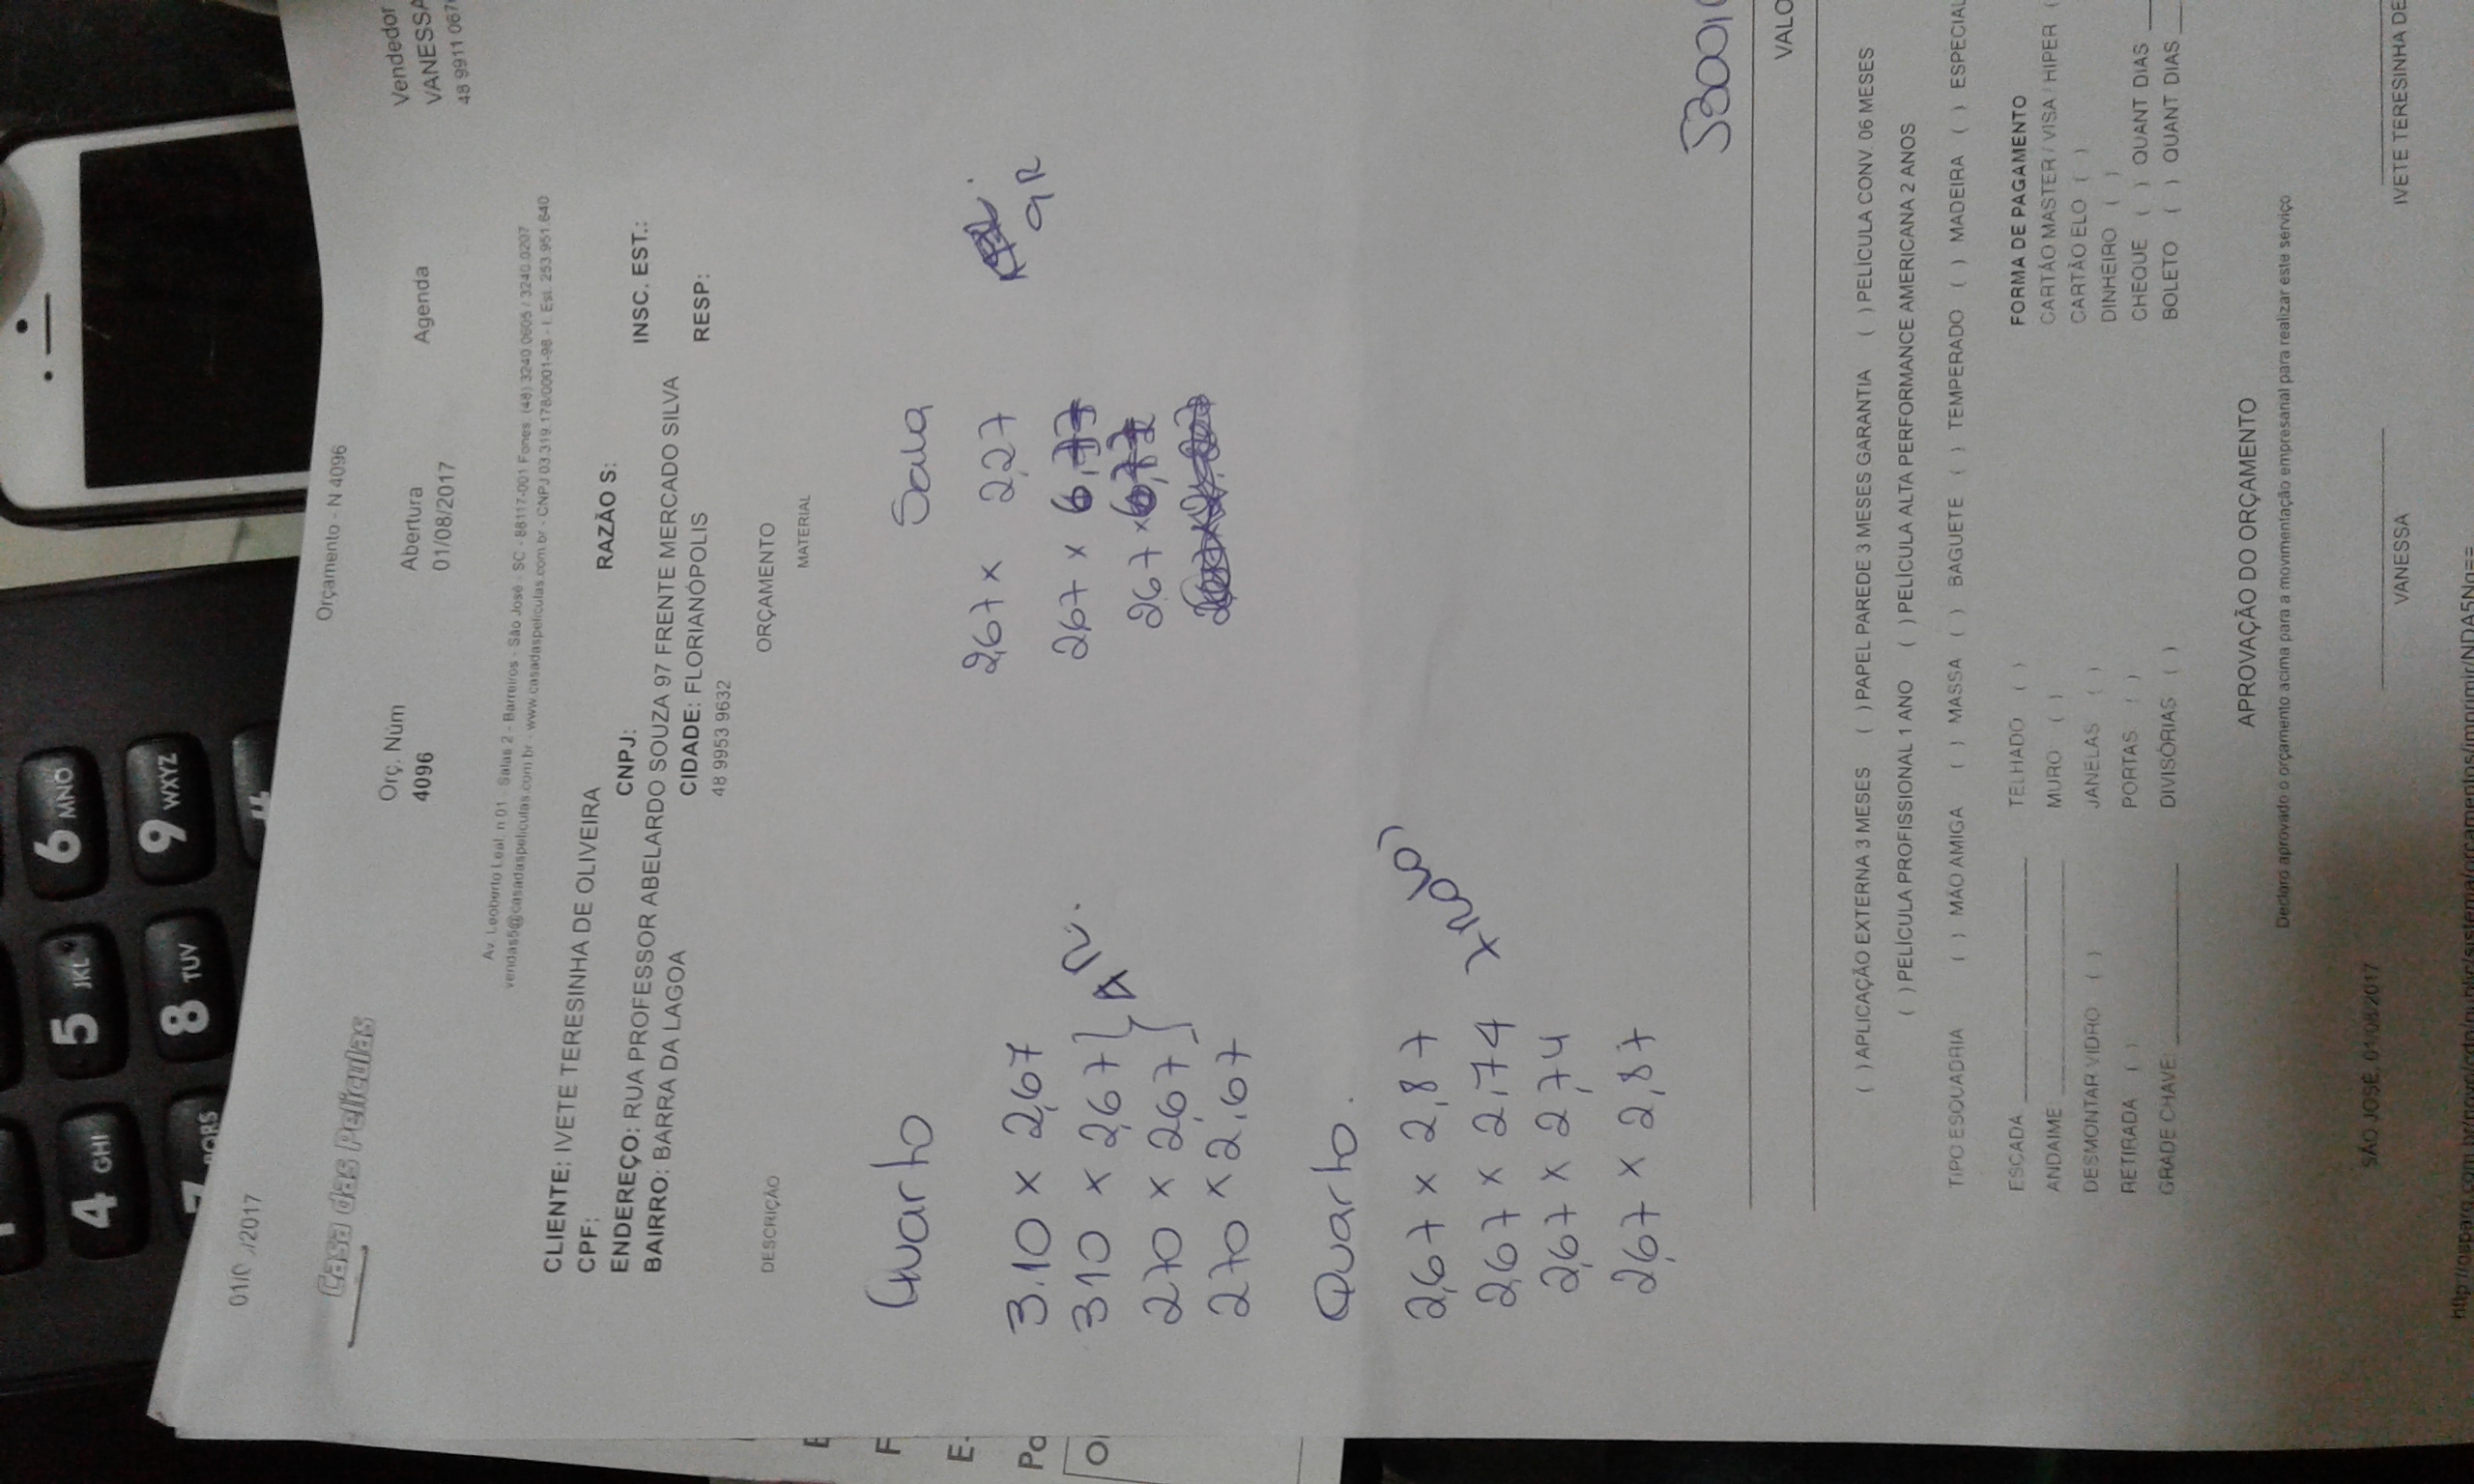 01/0 /2017
Orçamento - N 4096
Casa das Películas
Orç. Núm
4096
Abertura
01/08/2017
Agenda
Vendedor
VANESSA
48 9911 067
Av. Leoberto Leal, n 01 - Salas 2 - Barreiros - São José - SC - 88117-001 Fones: (48) 3240.0605 / 3240.0207
vendas5@casadaspeliculas.com.br - www.casadaspeliculas.com.br - CNPJ 03.319.178/0001-98 - I. Est. 253.951.640
CLIENTE: IVETE TERESINHA DE OLIVEIRA
RAZÃO S:
CPF:
CNPJ:
INSC. EST.:
ENDEREÇO: RUA PROFESSOR ABELARDO SOUZA 97 FRENTE MERCADO SILVA
BAIRRO: BARRA DA LAGOA
CIDADE: FLORIANÓPOLIS
RESP:
48 9953 9632
ORÇAMENTO
DESCRIÇÃO
MATERIAL
Quarto
3.10 x 2,67
3.10 x 2,67
270 x 2,67
270 x 2,67
Sala
2,67 x 2,27
267 x 6,77
267 x 6,72
Quarto.
2,67 x 2,87
2,67 x 2,74
2,67 x 2,74
2,67 x 2,87
VALO
( ) APLICAÇÃO EXTERNA 3 MESES ( ) PAPEL PAREDE 3 MESES GARANTIA ( ) PELÍCULA CONV. 06 MESES
( ) PELÍCULA PROFISSIONAL 1 ANO ( ) PELÍCULA ALTA PERFORMANCE AMERICANA 2 ANOS
TIPO ESQUADRIA ( ) MÃO AMIGA ( ) MASSA ( ) BAGUETE ( ) TEMPERADO ( ) MADEIRA ( ) ESPECIAL
ESCADA
ANDAIME
DESMONTAR VIDRO ( )
RETIRADA ( )
GRADE CHAVE
TELHADO ( )
MURO ( )
JANELAS ( )
PORTAS ( )
DIVISÓRIAS ( )
FORMA DE PAGAMENTO
CARTÃO MASTER / VISA / HIPER (
CARTÃO ELO ( )
DINHEIRO ( )
CHEQUE ( ) QUANT DIAS
BOLETO ( ) QUANT DIAS
APROVAÇÃO DO ORÇAMENTO
Declaro aprovado o orçamento acima para a movimentação empresarial para realizar este serviço
SÃO JOSÉ, 01/08/2017
VANESSA
IVETE TERESINHA DE
6 MNO
9 WXYZ
#
5 JKL
8 TUV
4 GHI